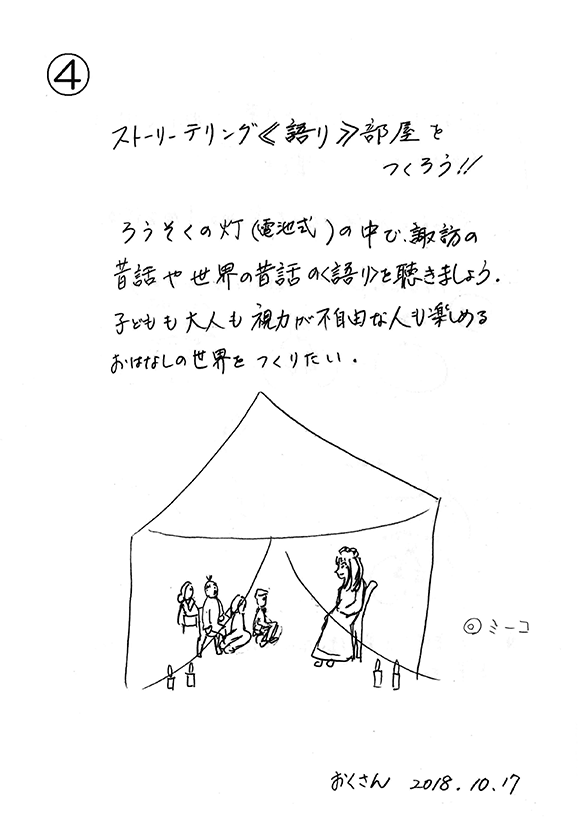 ④
ストーリーテリング≪語り≫部屋を
つくろう!!
ろうそくの灯(電池式)の中で、諏訪の
昔話や世界の昔話の〈語り〉を聴きましょう.
子どもも大人も視力が不自由な人も楽しめる
おはなしの世界をつくりたい.
◎ミーコ
おくさん 2018.10.17